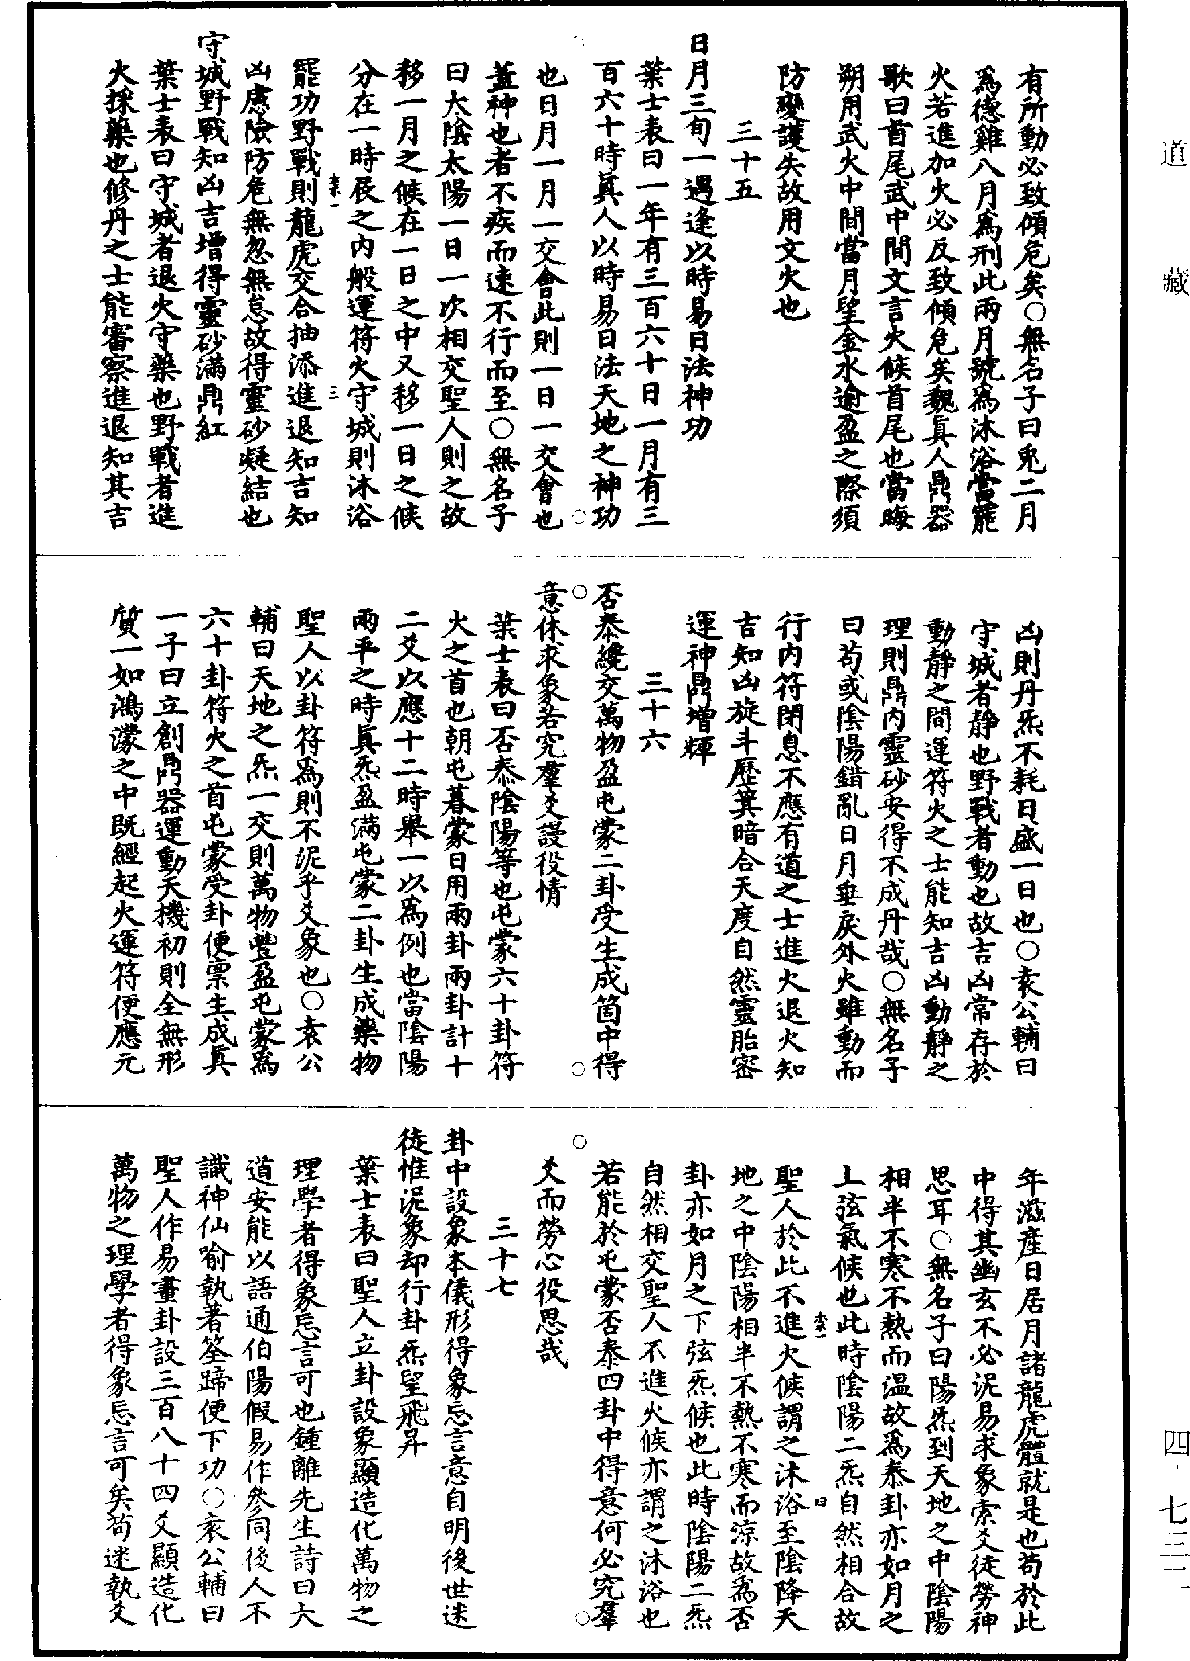 道藏
四·七三二
有所動必致傾危矣○無名子曰兎二月
爲德雞八月爲刑此兩月號爲沐浴當罷
火若進加火必反致傾危矣魏眞人鼎器
歌曰首尾武中間文言火候首尾也當晦
朔用武火中間當月望金水逾盈之際須
防變護失故用文火也
三十五
日月三旬一遇逢以時易日法神功
葉士表曰一年有三百六十日一月有三
百六十時眞人以時易日法天地之神功
也日月一月一交會此則一日一交會也
蓋神也者不疾而速不行而至○無名子
曰太陰太陽一日一次相交聖人則之故
移一月之候在一日之中又移一日之候
分在一時辰之內般運符火守城則沐浴
罷功野戰則龍虎交合抽添進退知吉知
凶慮險防危無忽無怠故得靈砂凝結也
守城野戰知凶吉增得靈砂滿鼎紅
葉士表曰守城者退火守藥也野戰者進
火採藥也修丹之士能審察進退知其吉
凶則丹炁不耗日盛一日也○袁公輔曰
守城者靜也野戰者動也故吉凶常存於
動靜之間運符火之士能知吉凶動靜之
理則鼎內靈砂安得不成丹哉○無名子
曰苟或陰陽錯亂日月乖戾外火雖動而
行內符閉息不應有道之士進火退火知
吉知凶旋斗歷箕暗合天度自然靈胎密
運神鼎增輝
三十六
否泰纔交萬物盈屯蒙二卦受生成箇中得
意休求象若究羣爻謾役情
葉士表曰否泰陰陽等也屯蒙六十卦符
火之首也朝屯暮蒙日用兩卦兩卦計十
二爻以應十二時舉一以爲例也當陰陽
兩平之時眞炁盈滿屯蒙二卦生成藥物
聖人以卦符爲則不泥乎爻象也○袁公
輔曰天地之炁一交則萬物豐盈屯蒙爲
六十卦符火之首屯蒙受卦便稟生成眞
一子曰立創鼎器運動天機初則全無形
質一如鴻濛之中既經起火運符便應元
年滋產日居月諸龍虎體就是也苟於此
中得其幽玄不必泥易求象索爻徒勞神
思耳○無名子曰陽炁到天地之中陰陽
相半不寒不熱而溫故爲泰卦亦如月之
上弦氣候也此時陰陽二炁自然相合故
聖人於此不進火候謂之沐浴至陰降天
地之中陰陽相半不熱不寒而涼故爲否
卦亦如月之下弦炁候也此時陰陽二炁
自然相交聖人不進火候亦謂之沐浴也
若能於屯蒙否泰四卦中得意何必究羣
爻而勞心役思哉
三十七
卦中設象本儀形得象忘言意自明後世迷
徒惟泥象却行卦炁望飛昇
葉士表曰聖人立卦設象顯造化萬物之
理學者得象忘言可也鍾離先生詩曰大
道安能以語通伯陽假易作參同後人不
識神仙喻執著筌蹄便下功○袁公輔曰
聖人作易畫卦設三百八十四爻顯造化
萬物之理學者得象忘言可矣苟迷執爻